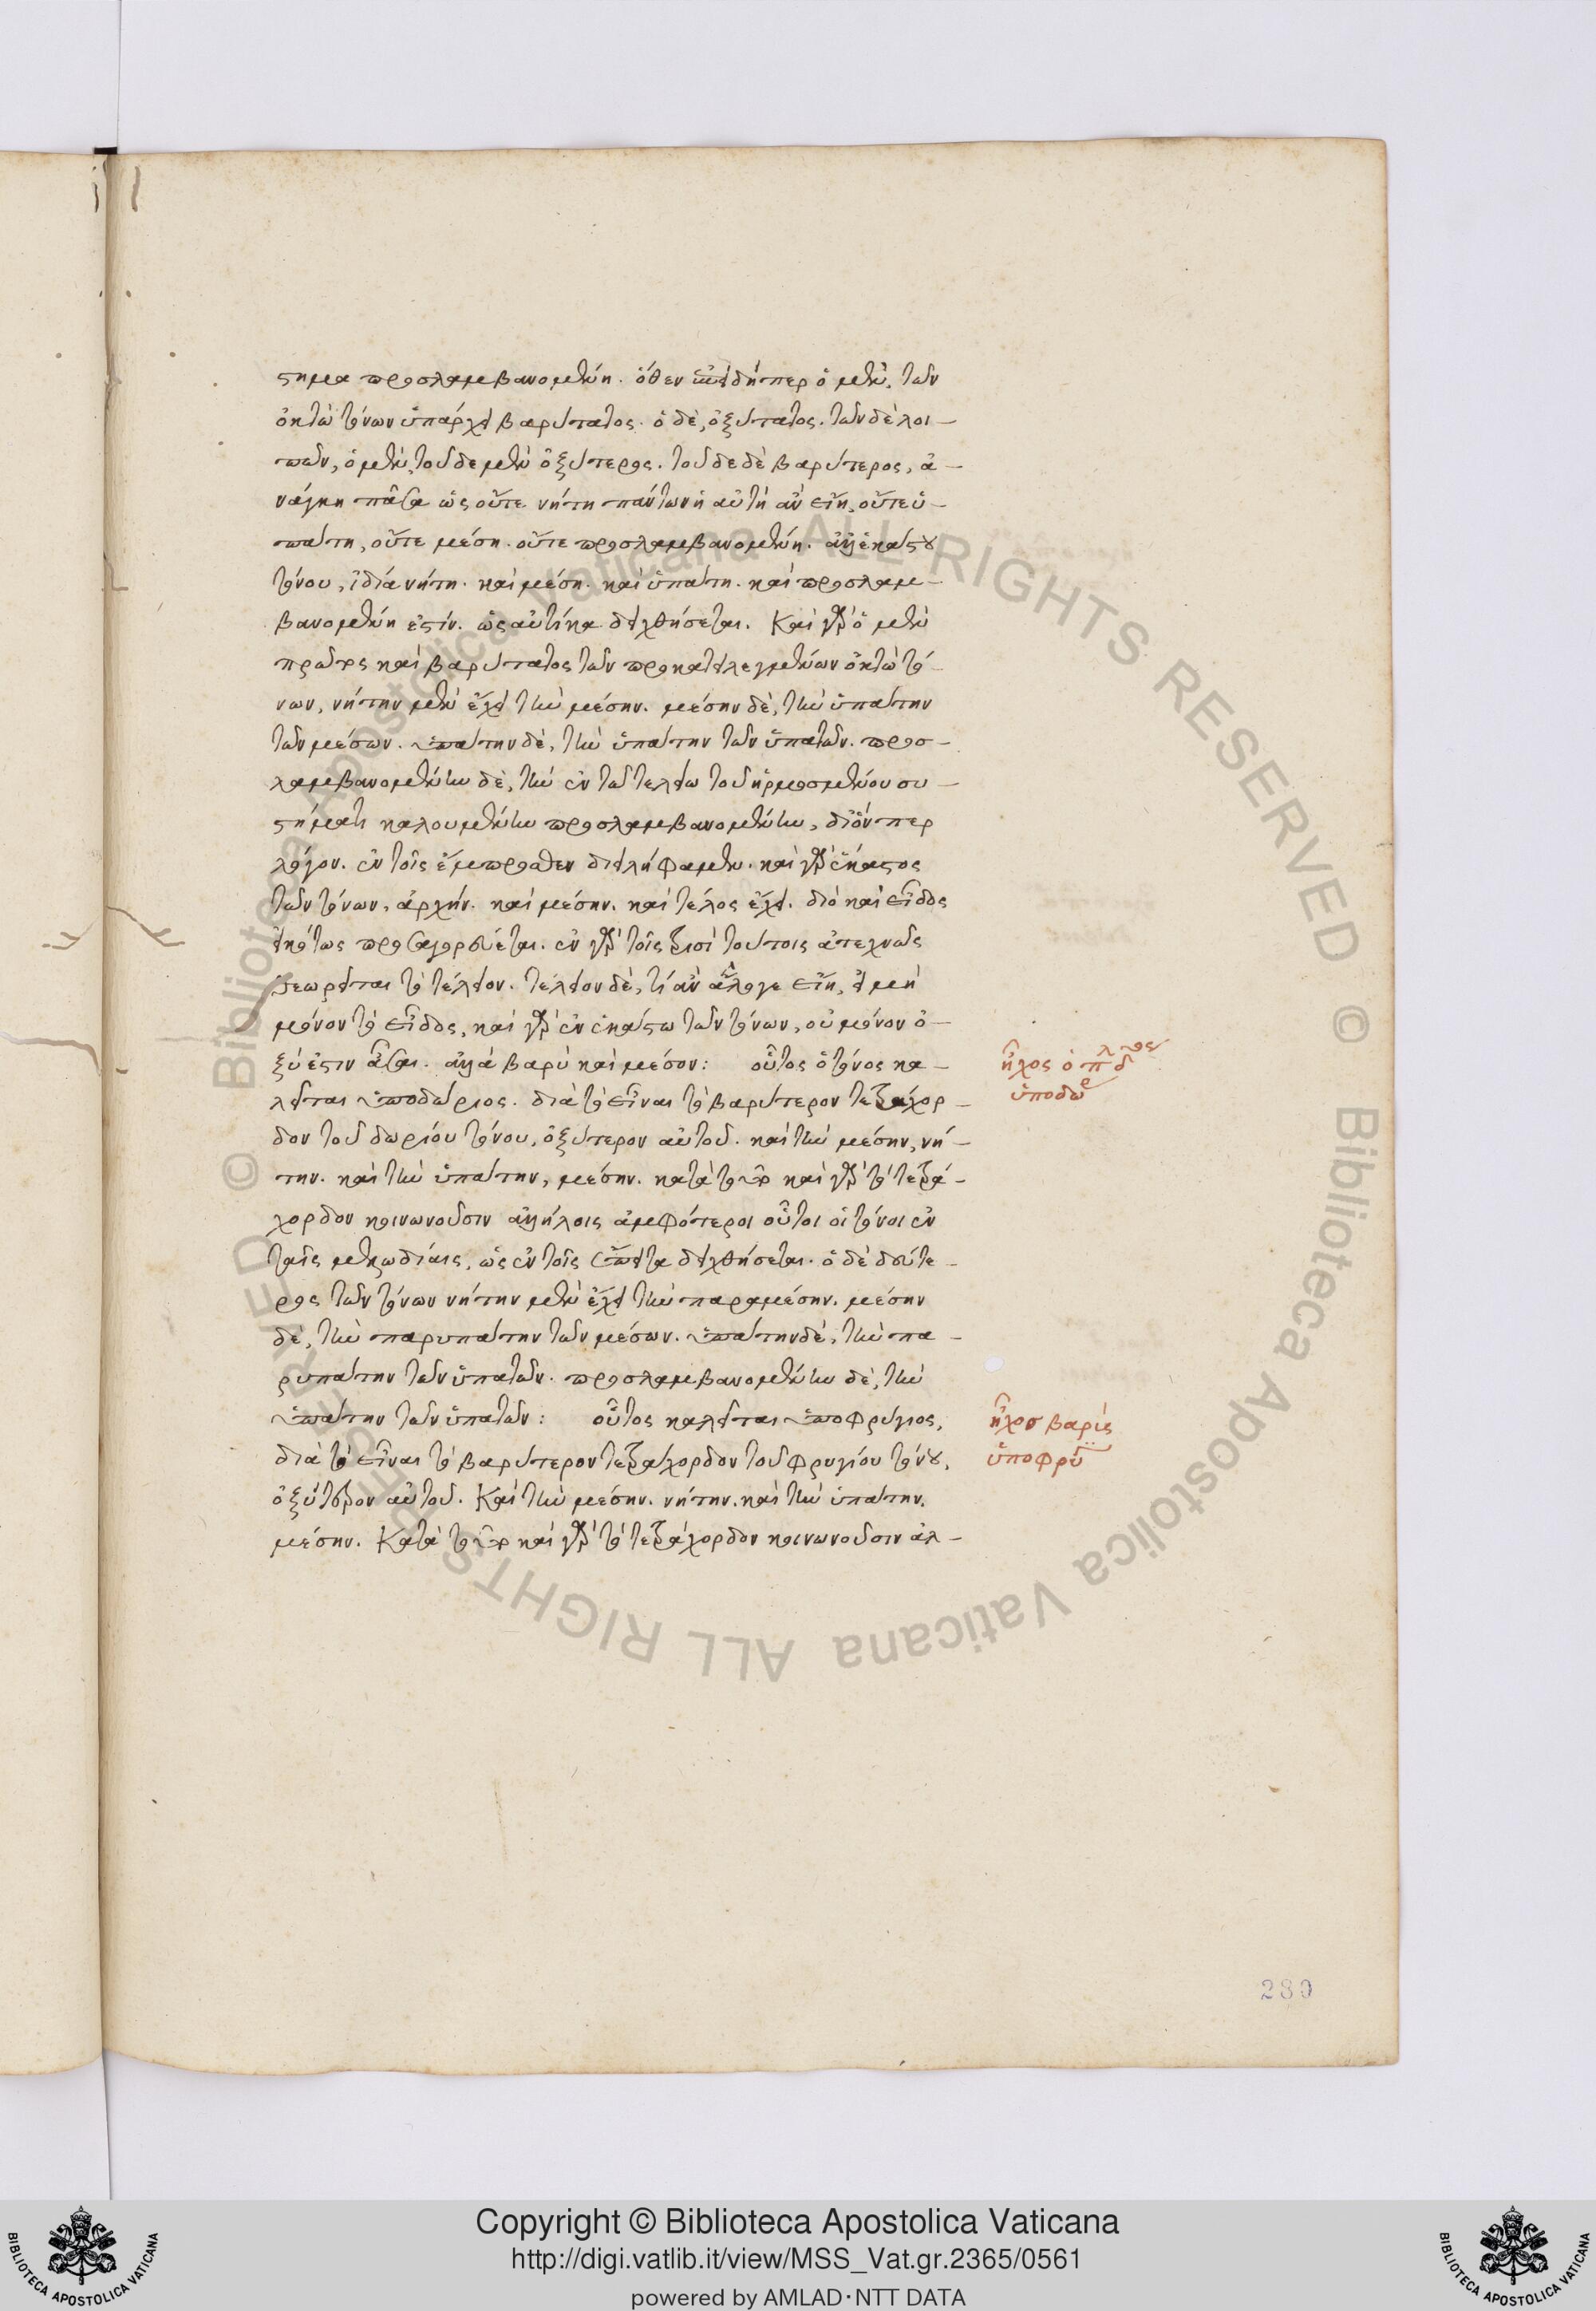 στημα προσλαμβανομένη. ὅθεν ἐπειδήπερ ὁ μὲν, τῶν
ὀκτὼ τόνων ὑπάρχει βαρύτατος. ὁ δὲ, ὀξύτατος. τῶν δὲ λοι-
πῶν, ὁ μὲν, τοῦδε μὲν ὀξύτερος. τοῦδε δὲ βαρύτερος, ἀ-
νάγκη πᾶσα ὡς οὔτε νήτη πάντων ἡ αὐτὴ ἂν εἴη, οὔτε ὑ-
πάτη, οὔτε μέση. οὔτε προσλαμβανομένη. ἀλλ' ἑκάστου
τόνου, ἰδία νήτη. καὶ μέση. καὶ ὑπάτη. καὶ προσλαμ-
βανομένη ἐστίν. ὡς αὐτίκα δειχθήσεται. Καὶ γὰρ ὁ μὲν
πρῶτος καὶ βαρύτατος τῶν προκατειλεγμένων ὀκτὼ τό-
νων, νήτην μὲν ἔχει τὴν μέσην. μέσην δὲ, τὴν ὑπάτην
τῶν μέσων. ὑπάτην δὲ, τὴν ὑπάτην τῶν ὑπατῶν. προσ-
λαμβανομένην δὲ, τὴν ἐν τῶ τελείω τοῦ ἡρμοσμένου συ-
στήματι καλουμένην προσλαμβανομένην, δι' ὅνπερ
λόγον. ἐν τοῖς ἔμπροσθεν διειλήφαμεν. καὶ γὰρ ἕκαστος
τῶν τόνων, ἀρχήν. καὶ μέσην. καὶ τέλος ἔχει. διὸ καὶ εἶδος
εἰκότως προσαγορεύεται. ἐν γὰρ τοῖς τρισὶ τούτοις ἀτεχνῶς
θεωρεῖται τὸ τέλειον. τέλειον δὲ, τί ἂν ἄλλο γε εἴη, εἰ μὴ
μόνον τὸ εἶδος, καὶ γὰρ ἐν ἑκάστω τῶν τόνων, οὐ μόνον ὀ-
ξύ ἐστιν ᾆσαι. ἀλλὰ βαρὺ καὶ μέσον: οὗτος ὁ τόνος κα-
ἦχος ὁ πλ δ
λεῖται ὑποδώριος. διὰ τὸ εἶναι τὸ βαρύτερον τετράχορ-
ὑποδωρ
δον τοῦ δωρίου τόνου, ὀξύτερον αὐτοῦ. καὶ τὴν μέσην, νή-
την. καὶ τὴν ὑπάτην, μέσην. κατὰ τοῦτο καὶ γὰρ τὸ τετρά-
χορδον κοινωνοῦσιν ἀλλήλοις ἀμφότεροι οὗτοι οἱ τόνοι ἐν
ταῖς μελωδίαις, ὡς ἐν τοῖς ἔπειτα δειχθήσεται. ὁ δὲ δεύτε-
ρος τῶν τόνων νήτην μὲν ἔχει τὴν παραμέσην. μέσην
δὲ, τὴν παρυπάτην τῶν μέσων. ὑπάτην δὲ, τὴν πα-
ρυπάτην τῶν ὑπατῶν. προσλαμβανομένην δὲ, τὴν
ὑπάτην τῶν ὑπατῶν: οὗτος καλεῖται ὑποφρύγιος,
ἦχοσ βαρὶς
διὰ τὸ εἶναι τὸ βαρύτερον τετράχορδον τοῦ φρυγίου τόνου,
ὑποφρύ
ὀξύτερον αὐτοῦ. Καὶ τὴν μέσην. νήτην. καὶ τὴν ὑπάτην.
μέσην. Κατὰ τοῦτο καὶ γὰρ τὸ τετράχορδον κοινωνοῦσιν ἀλ-
280
© Biblioteca Apostolica Vaticana ALL RIGHTS RESERVED
© Biblioteca Apostolica Vaticana ALL RIGHTS RESERVED
Copyright © Biblioteca Apostolica Vaticana
http://digi.vatlib.it/view/MSS_Vat.gr.2365/0561
powered by AMLAD·NTT DATA
BIBLIOTECA APOSTOLICA VATICANA
BIBLIOTECA APOSTOLICA VATICANA